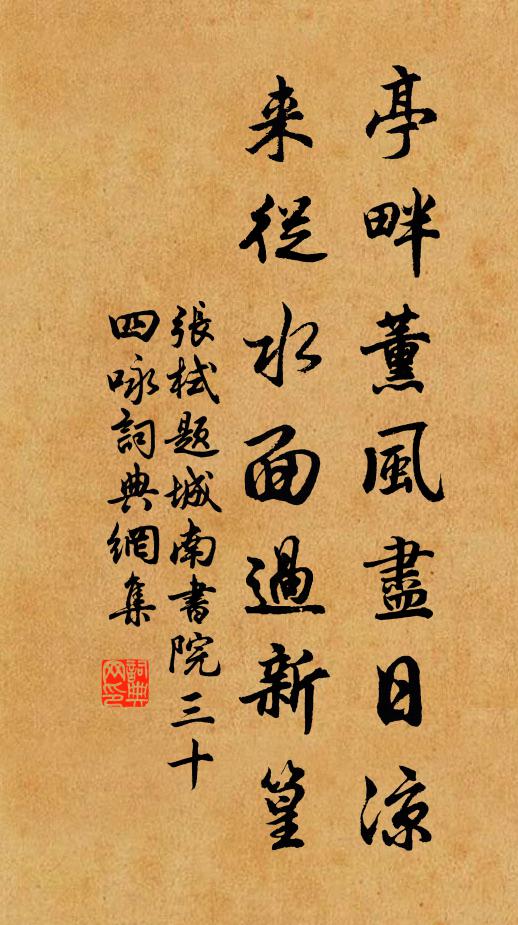 亭畔薰風盡日涼
来從水面過新篁
張栻題城南書院三十
四咏詞典網集
詞典
网印